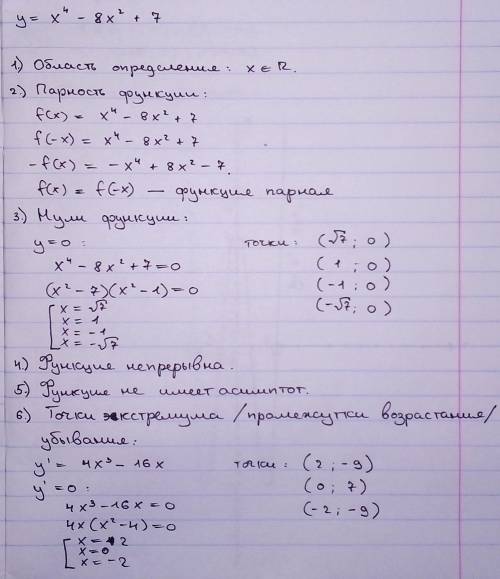 y = x⁴ - 8x² + 7
1) Область определения: x ∈ R.
2.) Парность функции:
f(x) = x⁴ - 8x² + 7
f(-x) = x⁴ - 8x² + 7
-f(x) = -x⁴ + 8x² - 7.
f(x) = f(-x) — функция парная
3.) Нули функции:
y=0: точки: (√7; 0)
x⁴ - 8x² + 7 = 0 (1; 0)
(x² - 7)(x² - 1) = 0 (-1; 0)
[ x = √7 (-√7; 0)
x = 1
x = -1
x = -√7
4.) Функция непрерывна.
5.) Функция не имеет асимптот.
6.) Точки экстремума / промежутки возрастания/
убывания:
y' = 4x³ - 16x точки: (2; -9)
y' = 0: (0; 7)
4x³ - 16x = 0 (-2; -9)
4x(x² - 4) = 0
[ x = 2
x = 0
x = -2